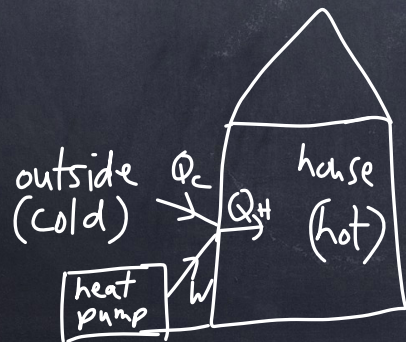 outside
(cold)
Qc
QH
W
house
(hot)
heat
pump